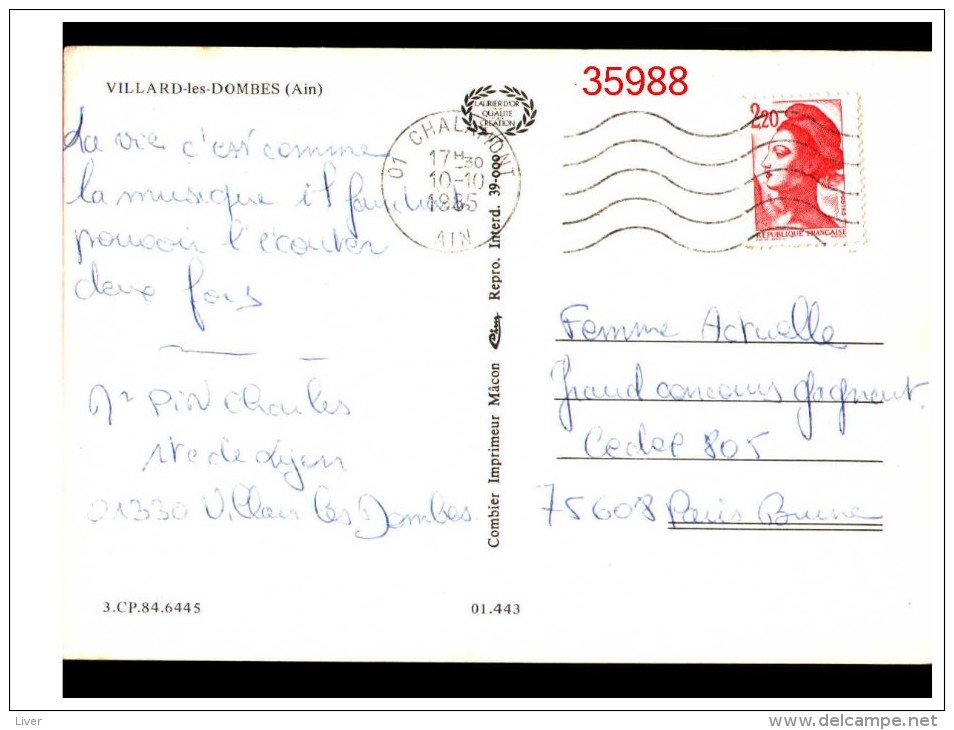 VILLARD-les-DOMBES (Ain)
35988
LAURIER D'OR
QUALITE
CREATION
01 CHALAMONT
17H30
10-10
1985
AIN
2,20
POSTES
REPUBLIQUE FRANÇAISE
La vie c'est comme
la musique il faudrait
pouvoir l'écouter
deux fois
Mr PIN Charles
rte de Lyon
01330 Villars les Dombes
Combier Imprimeur Mâcon Repro. Interd. 39-000
Femme Actuelle
Grand concours gagnant.
Cedex 805
75608 Paris Brune
3.CP.84.6445
01.443
Liver
www.delcampe.net